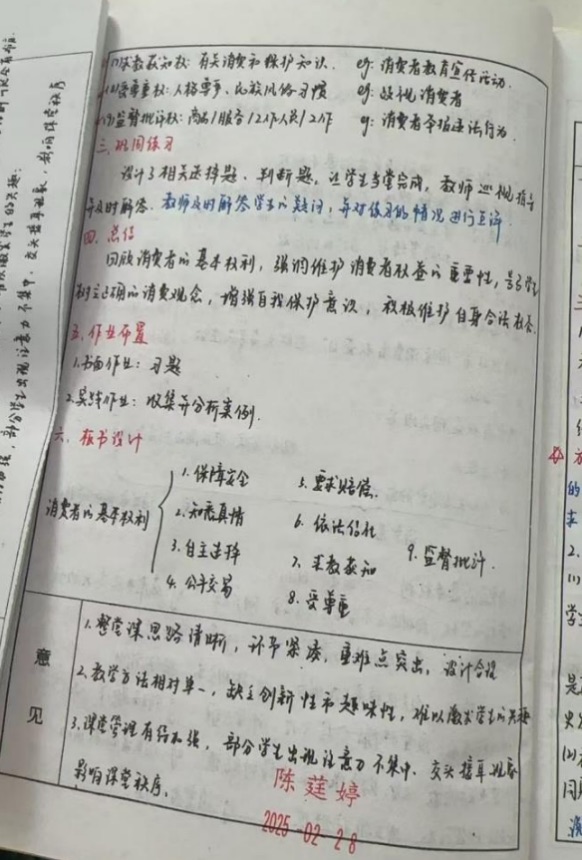 受教获知权：有关消费和维护知识. eg: 消费者教育宣传活动.
受尊重权：人格尊严、民族风俗习惯 eg: 歧视消费者
监督批评权：商品/服务/工作人员/工作 eg: 消费者举报违法行为.
三、巩固练习
设计了相关选择题、判断题，让学生当堂完成，教师巡视指导
并及时解答. 教师及时解答学生的疑问，并对练习的情况进行互评
四、总结
回顾消费者的基本权利，强调维护消费者权益的重要性，号召学生
树立正确的消费观念，增强自我保护意识，积极维护自身合法权益.
五、作业布置
1.书面作业：习题
2.实践作业：收集并分析案例.
六、板书设计
消费者的基本权利
1.保障安全
2.知悉真情
3.自主选择
4.公平交易
5.要求赔偿.
6.依法结社
7.受教获知
8.受尊重
9.监督批评.
意见
1.整堂课思路清晰，环节紧凑，重难点突出，设计合理
2.教学方法相对单一，缺乏创新性和趣味性，难以激发学生的兴趣
3.课堂管理有待加强，部分学生出现注意力不集中、交头接耳现象
影响课堂秩序.
陈莛婷
2025-02-28